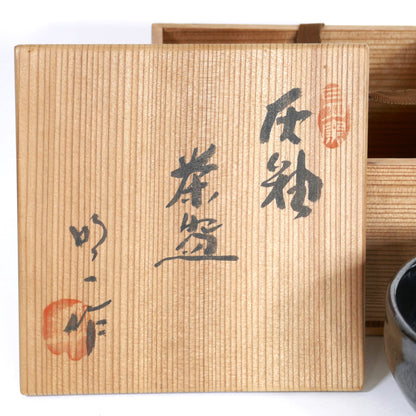 灰釉
茶盌
明一作